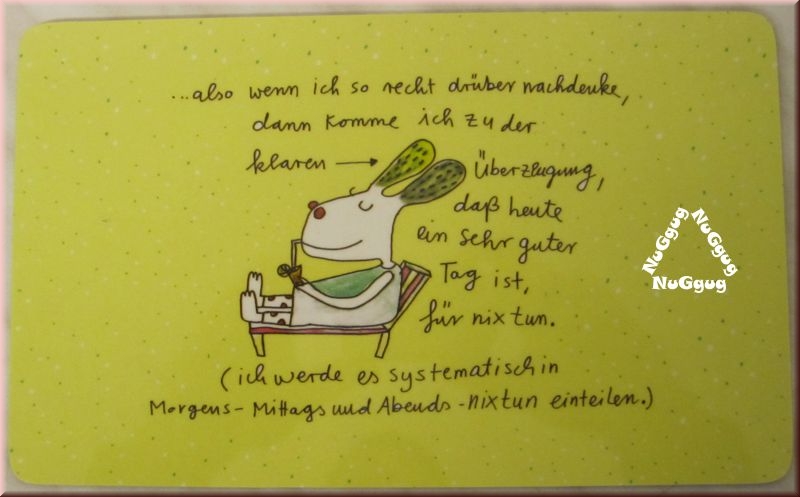 ...also wenn ich so recht drüber nachdenke,
dann komme ich zu der
klaren → Überzeugung,
daß heute
ein sehr guter
Tag ist,
für nix tun.
(ich werde es systematisch in
Morgens- Mittags und Abends-nixtun einteilen.)
NuGgug
NuGgug
NuGgug